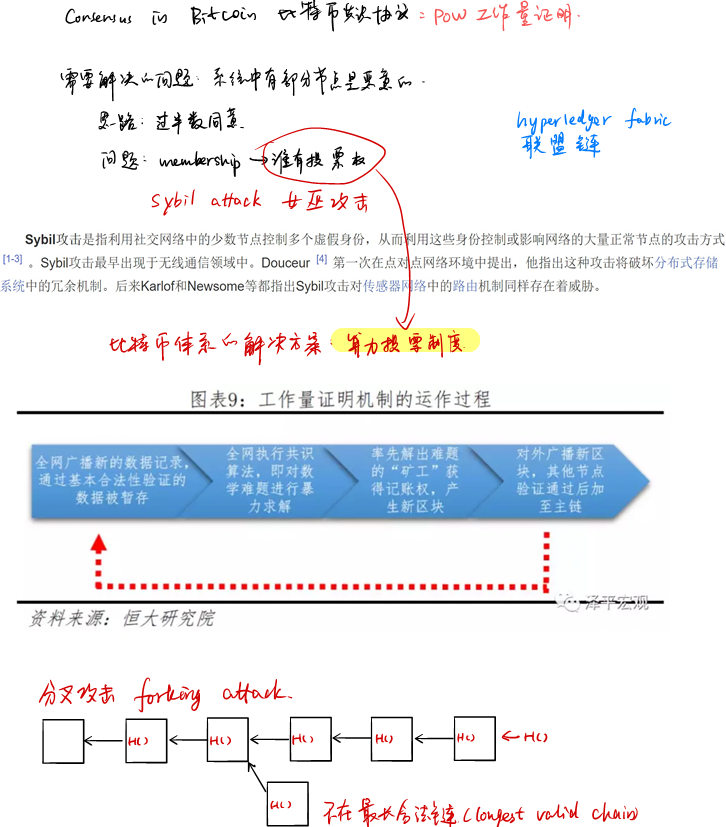 Consensus in Bitcoin 比特币共识协议: POW 工作量证明.
需要解决的问题: 系统中有部分节点是恶意的.
思路: 过半数同意.
hyperledger fabric
联盟链
问题: membership → 谁有投票权
Sybil attack 女巫攻击
Sybil攻击是指利用社交网络中的少数节点控制多个虚假身份，从而利用这些身份控制或影响网络的大量正常节点的攻击方式
[1-3] 。Sybil攻击最早出现于无线通信领域中。Douceur [4] 第一次在点对点网络环境中提出，他指出这种攻击将破坏分布式存储
系统中的冗余机制。后来Karlof和Newsome等都指出Sybil攻击对传感器网络中的路由机制同样存在着威胁。
比特币体系的解决方案: 算力投票制度
图表9：工作量证明机制的运作过程
全网广播新的数据记录，
通过基本合法性验证的
数据被暂存
全网执行共识
算法，即对数
学难题进行暴
力求解
率先解出难题
的“矿工”获
得记账权，产
生新区块
对外广播新区
块，其他节点
验证通过后加
至主链
泽平宏观
资料来源：恒大研究院
分叉攻击 forking attack.
H() H() H() H() H() ← H()
H() 不在最长合法链 (longest valid chain)